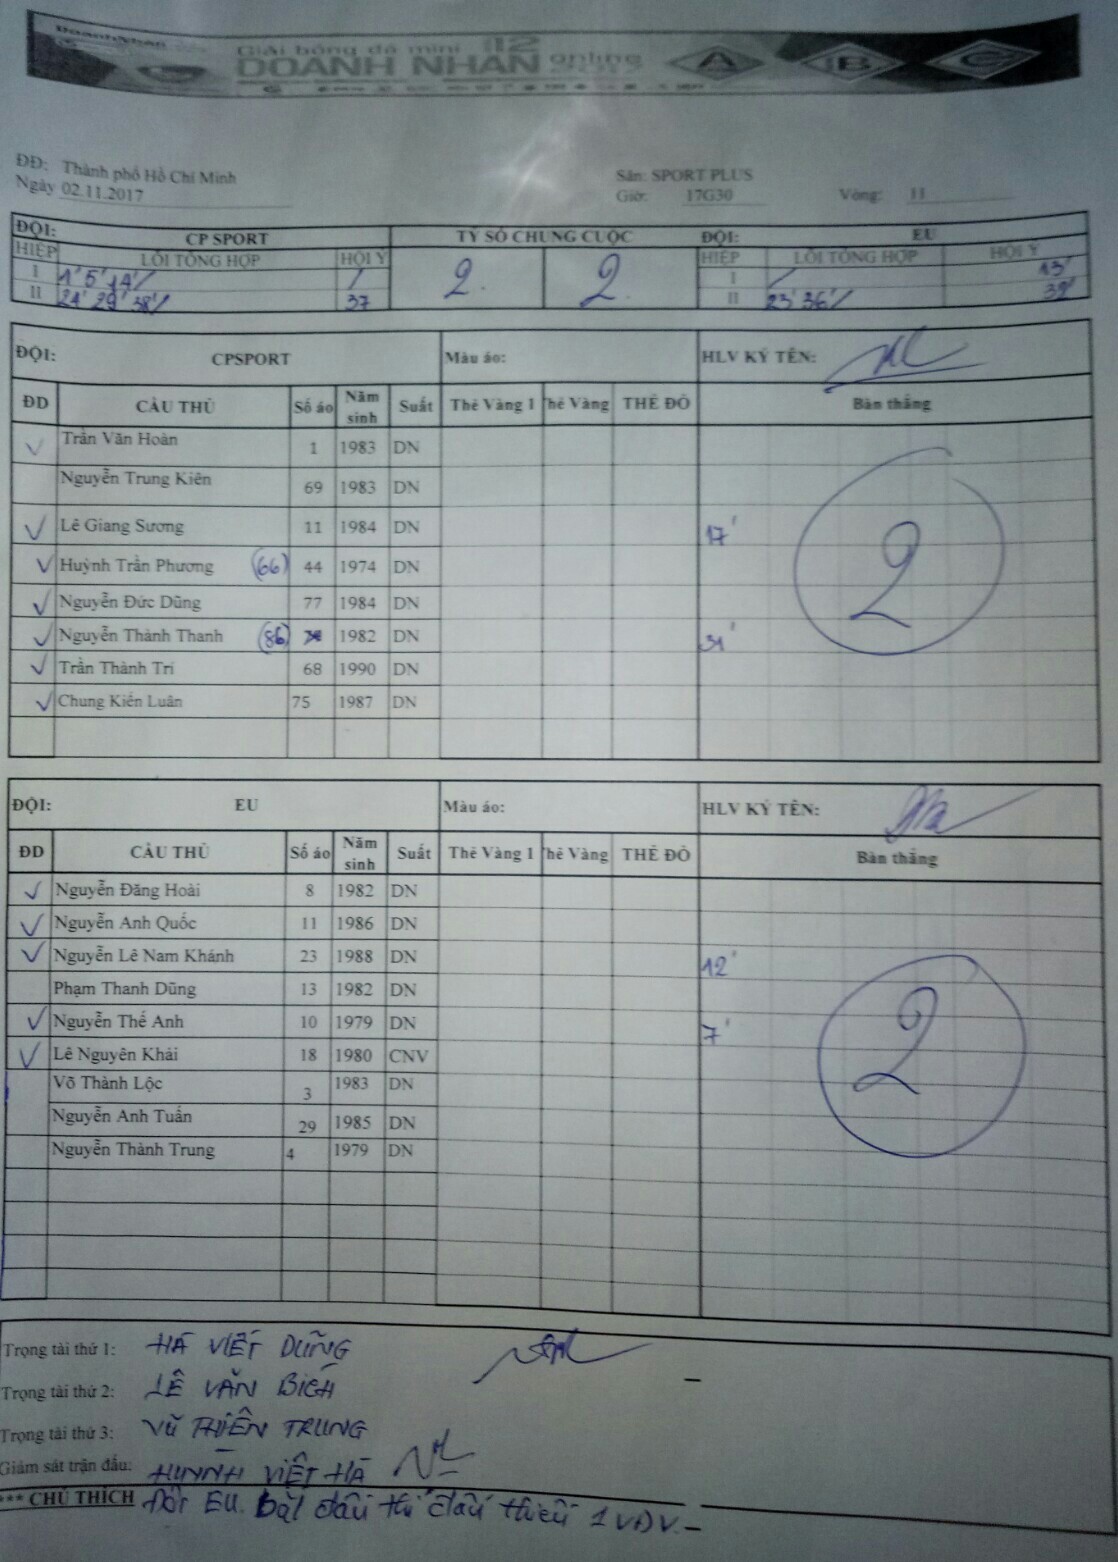 Giải bóng đá mini
DOANH NHÂN online
A B C
ĐĐ: Thành phố Hồ Chí Minh
Sân: SPORT PLUS
Ngày 02.11.2017
Giờ: 17G30 Vòng: 11
ĐỘI: CP SPORT TỶ SỐ CHUNG CUỘC ĐỘI: EU
HIỆP LỖI TỔNG HỢP HỘI Ý HIỆP LỖI TỔNG HỢP HỘI Ý
I 1' 5' 14' / / 2 2 I / 13'
II 24' 29' 38' / 37 II 23' 36' / 39'
ĐỘI: CPSPORT Màu áo: HLV KÝ TÊN:
ĐD CẦU THỦ Số áo Năm sinh Suất Thẻ Vàng 1 Thẻ Vàng THẺ ĐỎ Bàn thắng
Trần Văn Hoàn 1 1983 DN
Nguyễn Trung Kiên 69 1983 DN
Lê Giang Sương 11 1984 DN 17'
Huỳnh Trần Phương (66) 44 1974 DN
Nguyễn Đức Dũng 77 1984 DN
Nguyễn Thành Thanh (86) 1982 DN 31'
Trần Thành Trí 68 1990 DN
Chung Kiến Luân 75 1987 DN
2
ĐỘI: EU Màu áo: HLV KÝ TÊN:
ĐD CẦU THỦ Số áo Năm sinh Suất Thẻ Vàng 1 Thẻ Vàng THẺ ĐỎ Bàn thắng
Nguyễn Đăng Hoài 8 1982 DN
Nguyễn Anh Quốc 11 1986 DN
Nguyễn Lê Nam Khánh 23 1988 DN 12'
Phạm Thanh Dũng 13 1982 DN
Nguyễn Thế Anh 10 1979 DN 7'
Lê Nguyên Khải 18 1980 CNV
Võ Thành Lộc 3 1983 DN
Nguyễn Anh Tuấn 29 1985 DN
Nguyễn Thành Trung 4 1979 DN
2
Trọng tài thứ 1: HÀ VIẾT DŨNG
Trọng tài thứ 2: LÊ VĂN BÍCH
Trọng tài thứ 3: VŨ THIÊN TRUNG
Giám sát trận đấu: HUỲNH VIỆT HÀ
*** CHÚ THÍCH Đội EU. bắt đầu thi đấu thiếu 1 VĐV.